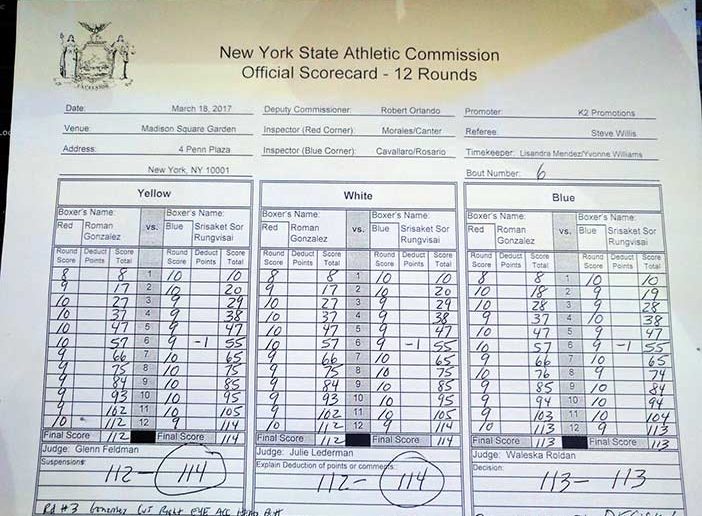 New York State Athletic Commission
Official Scorecard - 12 Rounds
EXCELSIOR
Date: March 18, 2017 Deputy Commissioner: Robert Orlando Promoter: K2 Promotions
Venue: Madison Square Garden Inspector (Red Corner): Morales/Canter Referee: Steve Willis
Address: 4 Penn Plaza Inspector (Blue Corner): Cavallaro/Rosario Timekeeper: Lisandra Mendez/Yvonne Williams
New York, NY 10001 Bout Number: 6
Yellow White Blue
Boxer's Name: vs. Boxer's Name: Boxer's Name: vs. Boxer's Name: Boxer's Name: vs. Boxer's Name:
Red Roman Blue Srisaket Sor Red Roman Blue Srisaket Sor Red Roman Blue Srisaket Sor
Gonzalez Rungvisai Gonzalez Rungvisai Gonzalez Rungvisai
Round Deduct Score Round Deduct Score Round Deduct Score Round Deduct Score Round Deduct Score Round Deduct Score
Score Points Total Score Points Total Score Points Total Score Points Total Score Points Total Score Points Total
8 8 1 10 10 8 8 1 10 10 8 8 1 10 10
9 17 2 10 20 9 17 2 10 20 10 18 2 9 19
10 27 3 9 29 10 27 3 9 29 10 28 3 9 28
10 37 4 9 38 10 37 4 9 38 9 37 4 10 38
10 47 5 9 47 10 47 5 9 47 10 47 5 9 47
10 57 6 9 -1 55 10 57 6 9 -1 55 10 57 6 9 -1 55
9 66 7 10 65 9 66 7 10 65 9 66 7 10 65
9 75 8 10 75 9 75 8 10 75 10 76 8 9 74
9 84 9 10 85 9 84 9 10 85 9 85 9 10 84
9 93 10 10 95 9 93 10 10 95 9 94 10 10 94
9 102 11 10 105 9 102 11 10 105 9 103 11 10 104
10 112 12 9 114 10 112 12 9 114 10 113 12 9 113
Final Score 112 Final Score 114 Final Score 112 Final Score 114 Final Score 113 Final Score 113
Judge: Glenn Feldman Judge: Julie Lederman Judge: Waleska Roldan
Suspensions: Explain Deduction of points or comments: Decision:
112-114 112-114 113-113
Rd #3 Gonzalez Cut Right EYE ACC